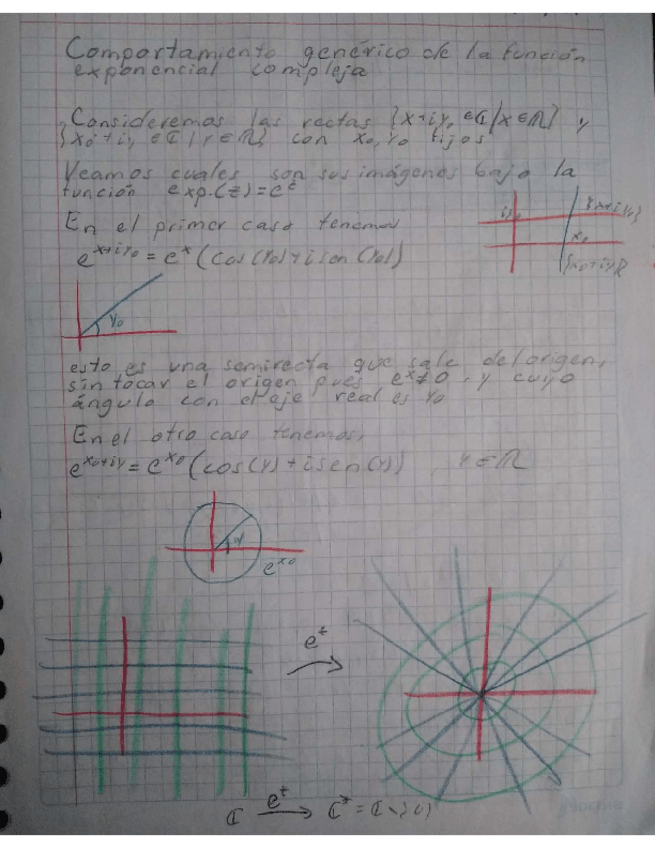 Comportamiento genérico de la función
exponencial compleja
Consideremos las rectas {x+iy₀ ∈ ℂ / x ∈ ℝ} y
{x₀+iy ∈ ℂ / y ∈ ℝ} con x₀, y₀ fijos
Veamos cuales son sus imágenes bajo la
función exp.(z)=e^z
En el primer caso tenemos
e^{x+iy₀} = e^x (cos(y₀)+isen(y₀))
iy₀
{x+iy₀}
x₀
{x₀+iy}
y₀
esto es una semirecta que sale del origen,
sin tocar el origen pues e^x≠0, y cuyo
ángulo con el eje real es y₀
En el otro caso tenemos,
e^{x₀+iy} = e^{x₀} (cos(y)+isen(y)) y ∈ ℝ
y
e^{x₀}
e^z
ℂ e^z → ℂ* = ℂ \ {0}